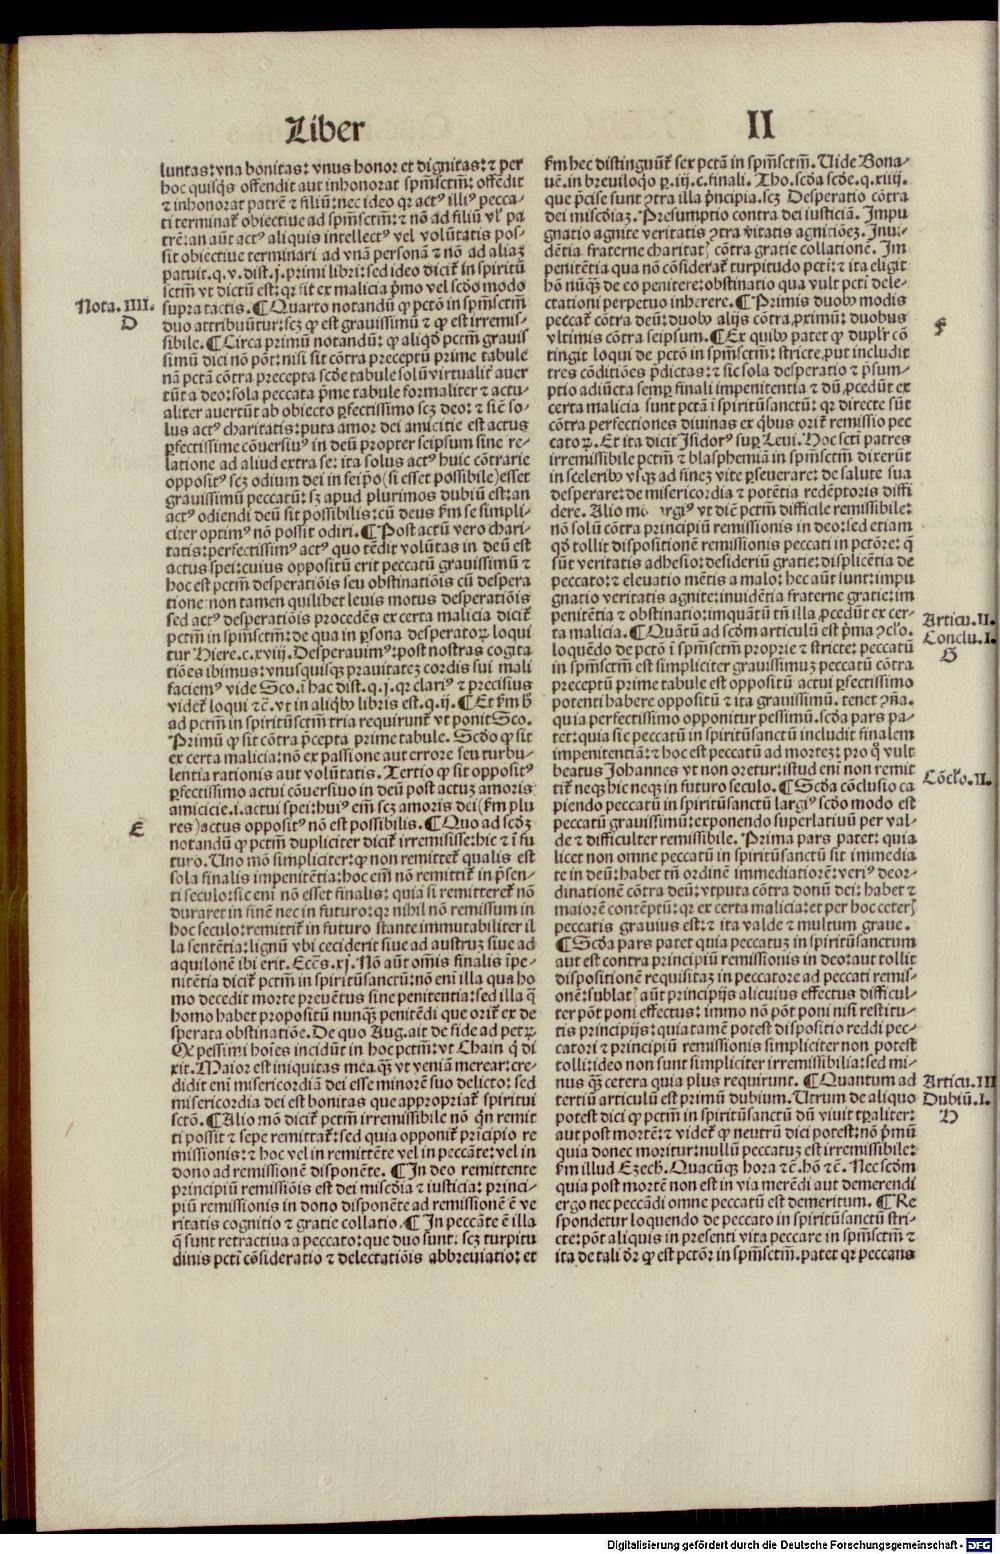 Liber
II
luntas: vna bonitas: vnus honor et dignitas: ⁊ per
hoc quisq̃s offendit aut inhonorat spm̃sctm̃: offẽdit
⁊ inhonorat patrẽ ⁊ filiũ: nec ideo qr actꝰ illiꝰ pecca-
ti terminat᷑ obiectiue ad spm̃sctm̃: ⁊ nõ ad filiũ vl̓ pa
trẽ: an aũt actꝰ aliquis intellectꝰ vel volũtatis pos-
sit obiectiue terminari ad vnã personã ⁊ nõ ad aliaȝ
patuit. q. v. dist. j. primi libri: sed ideo dicit᷑ in spiritũ
sctm̃ vt dictũ est: qr sit ex malicia p̃mo vel scd̃o modo
supra tactis. ¶ Quarto notandũ ꝙ pctõ in spm̃sctm̃
duo attribuũtur: scȝ ꝙ est grauissimũ ⁊ ꝙ est irremis-
sibile. ¶ Circa primũ notandũ: ꝙ aliqd̃ pctm̃ grauis
simũ dici nõ põt: nisi sit cõtra preceptũ prime tabule
nã pctã cõtra precepta scd̃e tabule solũ virtualit᷑ auer
tũt a deo: sola peccata p̃me tabule formaliter ⁊ actu-
aliter auertũt ab obiecto ꝑfectissimo scȝ deo: ⁊ sic̃ so-
lus actꝰ charitatis: puta amor dei amicitie est actus
ꝑfectissime cõuersiuꝰ in deũ propter seipsum sine re-
latione ad aliud extra se: ita solus actꝰ huic cõtrarie
oppositꝰ scȝ odium dei in seip̃o (si esset possibile) esset
grauissimũ peccatũ: sȝ apud plurimos dubiũ est: an
actꝰ odiendi deũ sit possibilis: cũ deus ẜm se simpli-
citer optimꝰ nõ possit odiri. ¶ Post actũ vero chari-
tatis: perfectissimꝰ actꝰ quo tẽdit volũtas in deũ est
actus spei: cuius oppositũ erit peccatũ grauissimũ ⁊
hoc est pctm̃ desperatiõis seu obstinatiõis cũ despera
tione: non tamen quilibet leuis motus desperatiõis
sed actꝰ desperatiõis procedẽs ex certa malicia dicit᷑
pctm̃ in spm̃sctm̃: de qua in ꝑsona desperatoꝝ loqui
tur Hiere. c. xviij. Desperauimꝰ: post nostras cogita
tiões ibimus: vnusquisqȝ prauitateȝ cordis sui mali
faciemꝰ vide Sco. ĩ hac dist. q. j. qr clariꝰ ⁊ precisius
videt᷑ loqui ⁊c̃. vt in aliq̃bꝰ libris est. q. ij. ¶ Et ẜm hũ
ad pctm̃ in spiritũsctm̃ tria requirunt᷑ vt ponit Sco.
Primũ ꝙ sit cõtra p̃cepta prime tabule. Scd̃o ꝙ sit
ex certa malicia: nõ ex passione aut errore seu turbu-
lentia rationis aut volũtatis. Tertio ꝙ sit oppositꝰ
ꝑfectissimo actui cõuersiuo in deũ post actuȝ amoris
amicicie. i. actui spei: huiꝰ em̃ scȝ amoris dei (ẜm plu
res) actus oppositꝰ nõ est possibilis. ¶ Quo ad scd̃ȝ
notandũ ꝙ pctm̃ dupliciter dicit᷑ irremississe: hic ⁊ ĩ fu
turo. Uno mõ simpliciter: ꝙ non remittet᷑ qualis est
sola finalis impenitẽtia: hoc em̃ nõ remittit᷑ in p̃sen-
ti seculo: sic eni nõ esset finalis: quia si remitteret᷑ nõ
duraret in finẽ nec in futuro: qr nihil nõ remissum in
hoc seculo: remittit᷑ in futuro stante immutabiliter il
la sentẽtia: lignũ vbi ceciderit siue ad austruȝ siue ad
aquilonẽ ibi erit. Eccẽs. xj. Nõ aũt om̃is finalis ĩpe-
nitẽtia dicit᷑ pctm̃ in spiritũsanctũ: nõ eni illa qua ho
mo decedit morte preuẽtus sine penitentia: sed illa q̃
homo habet propositũ nunqȝ penitẽdi que orit᷑ ex de
sperata obstinatiõe. De quo Aug. ait de fide ad petꝝ.
Qȝ pessimi hoĩes incidũt in hoc pctm̃: vt Chain q̃ di
xit. Maior est iniquitas mea qȝ vt veniã merear: cre-
didit eni misericordiã dei esse minorẽ suo delicto: sed
misericordia dei est bonitas que appropriat᷑ spiritui
sctõ. ¶ Alio mõ dicit᷑ pctm̃ irremissibile nõ qn̄ remit
ti possit ⁊ sepe remittat᷑: sed quia opponit᷑ pri̇cipio re
missionis: ⁊ hoc vel in remittẽte vel in peccãte: vel in
dono ad remissionẽ disponẽte. ¶ In deo remittente
principiũ remissiõis est dei misc̃dia ⁊ iusticia: princi-
piũ remissionis in dono disponẽte ad remissionẽ ẽ ve
ritatis cognitio ⁊ gratie collatio. ¶ In peccãte ẽ illa
q̃ sunt retractiua a peccato: que duo sunt: scȝ turpitu
dinis pcti cõsideratio ⁊ delectatiõis abbreuiatio: et
Nota. IIII.
D
E
ẜm hec distinguũt᷑ sex pctã in spm̃sctm̃. Uide Bona-
uẽ. in breuiloq̃o p. iij. c. finali. Tho. scd̃a scd̃e. q. xiiij.
que p̃cise sunt ꝯtra illa p̃ncipia. scȝ Desperatio cõtra
dei misc̃diaȝ. Presumptio contra dei iusticiã. Impu
gnatio agnite veritatis ꝯtra v̓itatis agnitiõeȝ. Inui-
dẽtia fraterne charitatꝭ cõtra gratie collationẽ. Im
penitẽtia qua nõ cõsiderat᷑ turpitudo pcti: ⁊ ita eligit
hõ nũqȝ de eo penitere: obstinatio qua vult pcti dele-
ctationi perpetuo inherere. ¶ Primis duobꝰ modis
peccat᷑ cõtra deũ: duobꝰ alijs cõtra ꝓximũ: duobus
vltimis cõtra seipsum. ¶ Ex quibꝰ patet ꝙ duplr̃ cõ
tingit loqui de pctõ in spm̃sctm̃: stricte, put includit
tres cõditiões p̃dictas: ⁊ sic sola desperatio ⁊ p̃sum-
ptio adiũcta semꝑ finali impenitentia ⁊ dũ ꝓcedũt ex
certa malicia sunt pctã ĩ spiritũsanctũ: qr directe sũt
cõtra perfectiones diuinas ex q̃bus orit᷑ remissio pec
catoꝝ. Et ita dicit Isidorꝰ suꝑ Leui. Hoc sctĩ patres
irremissibile pctm̃ ⁊ blasphemiã in spm̃sctm̃ dixerũt
in sceleribꝰ vsqȝ ad fineȝ vite ꝑseuerare: de salute sua
desperare: de misericordia ⁊ potẽtia redẽptoris diffi
dere. Alio mõ vt dictũ pctm̃ difficile remissibile:
nõ solũ cõtra principiũ remissionis in deo: sed etiam
qd̃ tollit dispositionẽ remissionis peccati in pctõre: q̃
sũt veritatis adhesio: desideriũ gratie: displicẽtia de
peccato: ⁊ eleuatio mẽtis a malo: hec aũt sunt: impu
gnatio veritatis agnite: inuidẽtia fraterne gratie: im
penitẽtia ⁊ obstinatio: imquãtũ tñ illa ꝓcedũt ex cer-
ta malicia. ¶ Quãtũ ad scd̃m articulũ est p̃ma ꝯclo.
loquẽdo de pctõ ĩ spm̃sctm̃ proprie ⁊ stricte: peccatũ
in spm̃sctm̃ est simpliciter grauissimuȝ peccatũ cõtra
preceptũ prime tabule est oppositũ actui ꝑfectissimo
potenti habere oppositũ ⁊ ita grauissimũ. tenet ꝯñã.
quia perfectissimo opponitur pessimũ. scd̃a pars pa-
tet: quia sic peccatũ in spiritũsanctũ includit finalem
impenitentiã: ⁊ hoc est peccatũ ad morteȝ: pro q̊ vult
beatus Johannes vt non oretur: istud eni non remit
tit᷑ neqȝ hic neqȝ in futuro seculo. ¶ Scd̃a cõclusio ca
piendo peccatũ in spiritũsanctũ largiꝰ scd̃o modo est
peccatũ grauissimũ: exponendo superlatiuũ per val-
de ⁊ difficulter remissibile. Prima pars patet: quia
licet non omne peccatũ in spiritũsanctũ sit immedia
te in deũ: habet tñ ordinẽ immediatiorẽ: veriꝰ deor-
dinationẽ cõtra deũ: vtputa cõtra donũ dei: habet ⁊
maiorẽ contẽptũ: qr ex certa malicia: et per hoc ceterꝭ
peccatis grauius est: ⁊ ita valde ⁊ multum graue.
¶ Scd̃a pars patet quia peccatuȝ in spiritũsanctum
aut est contra principiũ remissionis in deo: aut tollit
dispositionẽ requisitaȝ in peccatore ad peccati remis-
onẽ: sublatꝭ aũt principijs alicuius effectus difficul-
ter põt poni effectus: immo nõ põt poni nisi restitu-
tis principijs: quia tamẽ potest dispositio reddi pec-
catori ⁊ principiũ remissionis simpliciter non potest
tolli: ideo non sunt simpliciter irremissibilia: sed mi-
nus qȝ cetera quia plus requirunt. ¶ Quantum ad
tertiũ articulũ est primũ dubium. Utrum de aliquo
potest dici ꝙ pctm̃ in spiritũsanctũ dũ viuit tꝑaliter:
aut post mortẽ: ⁊ videt᷑ ꝙ neutrũ dici potest: nõ p̃mũ
quia donec moritur: nullũ peccatuȝ est irremissibile:
ẜm illud Ezech. Quacũqȝ hora ⁊c̃. hõ ⁊c̃. Nec scd̃m
quia post mortẽ non est in via merẽdi aut demerendi
ergo nec peccãdi omne peccatũ est demeritum. ¶ Re
spondetur loquendo de peccato in spiritũsanctũ stri-
cte: põt aliquis in presenti vita peccare in spm̃sctm̃ ⁊
ita de tali dr̃ ꝙ est pctõr in spm̃sctm̃. patet qr peccans
F
Articu. II.
Conclu. I.
G
Cõclo. II.
Articu. III
Dubiũ. I.
H
Digitalisierung gefördert durch die Deutsche Forschungsgemeinschaft - DFG